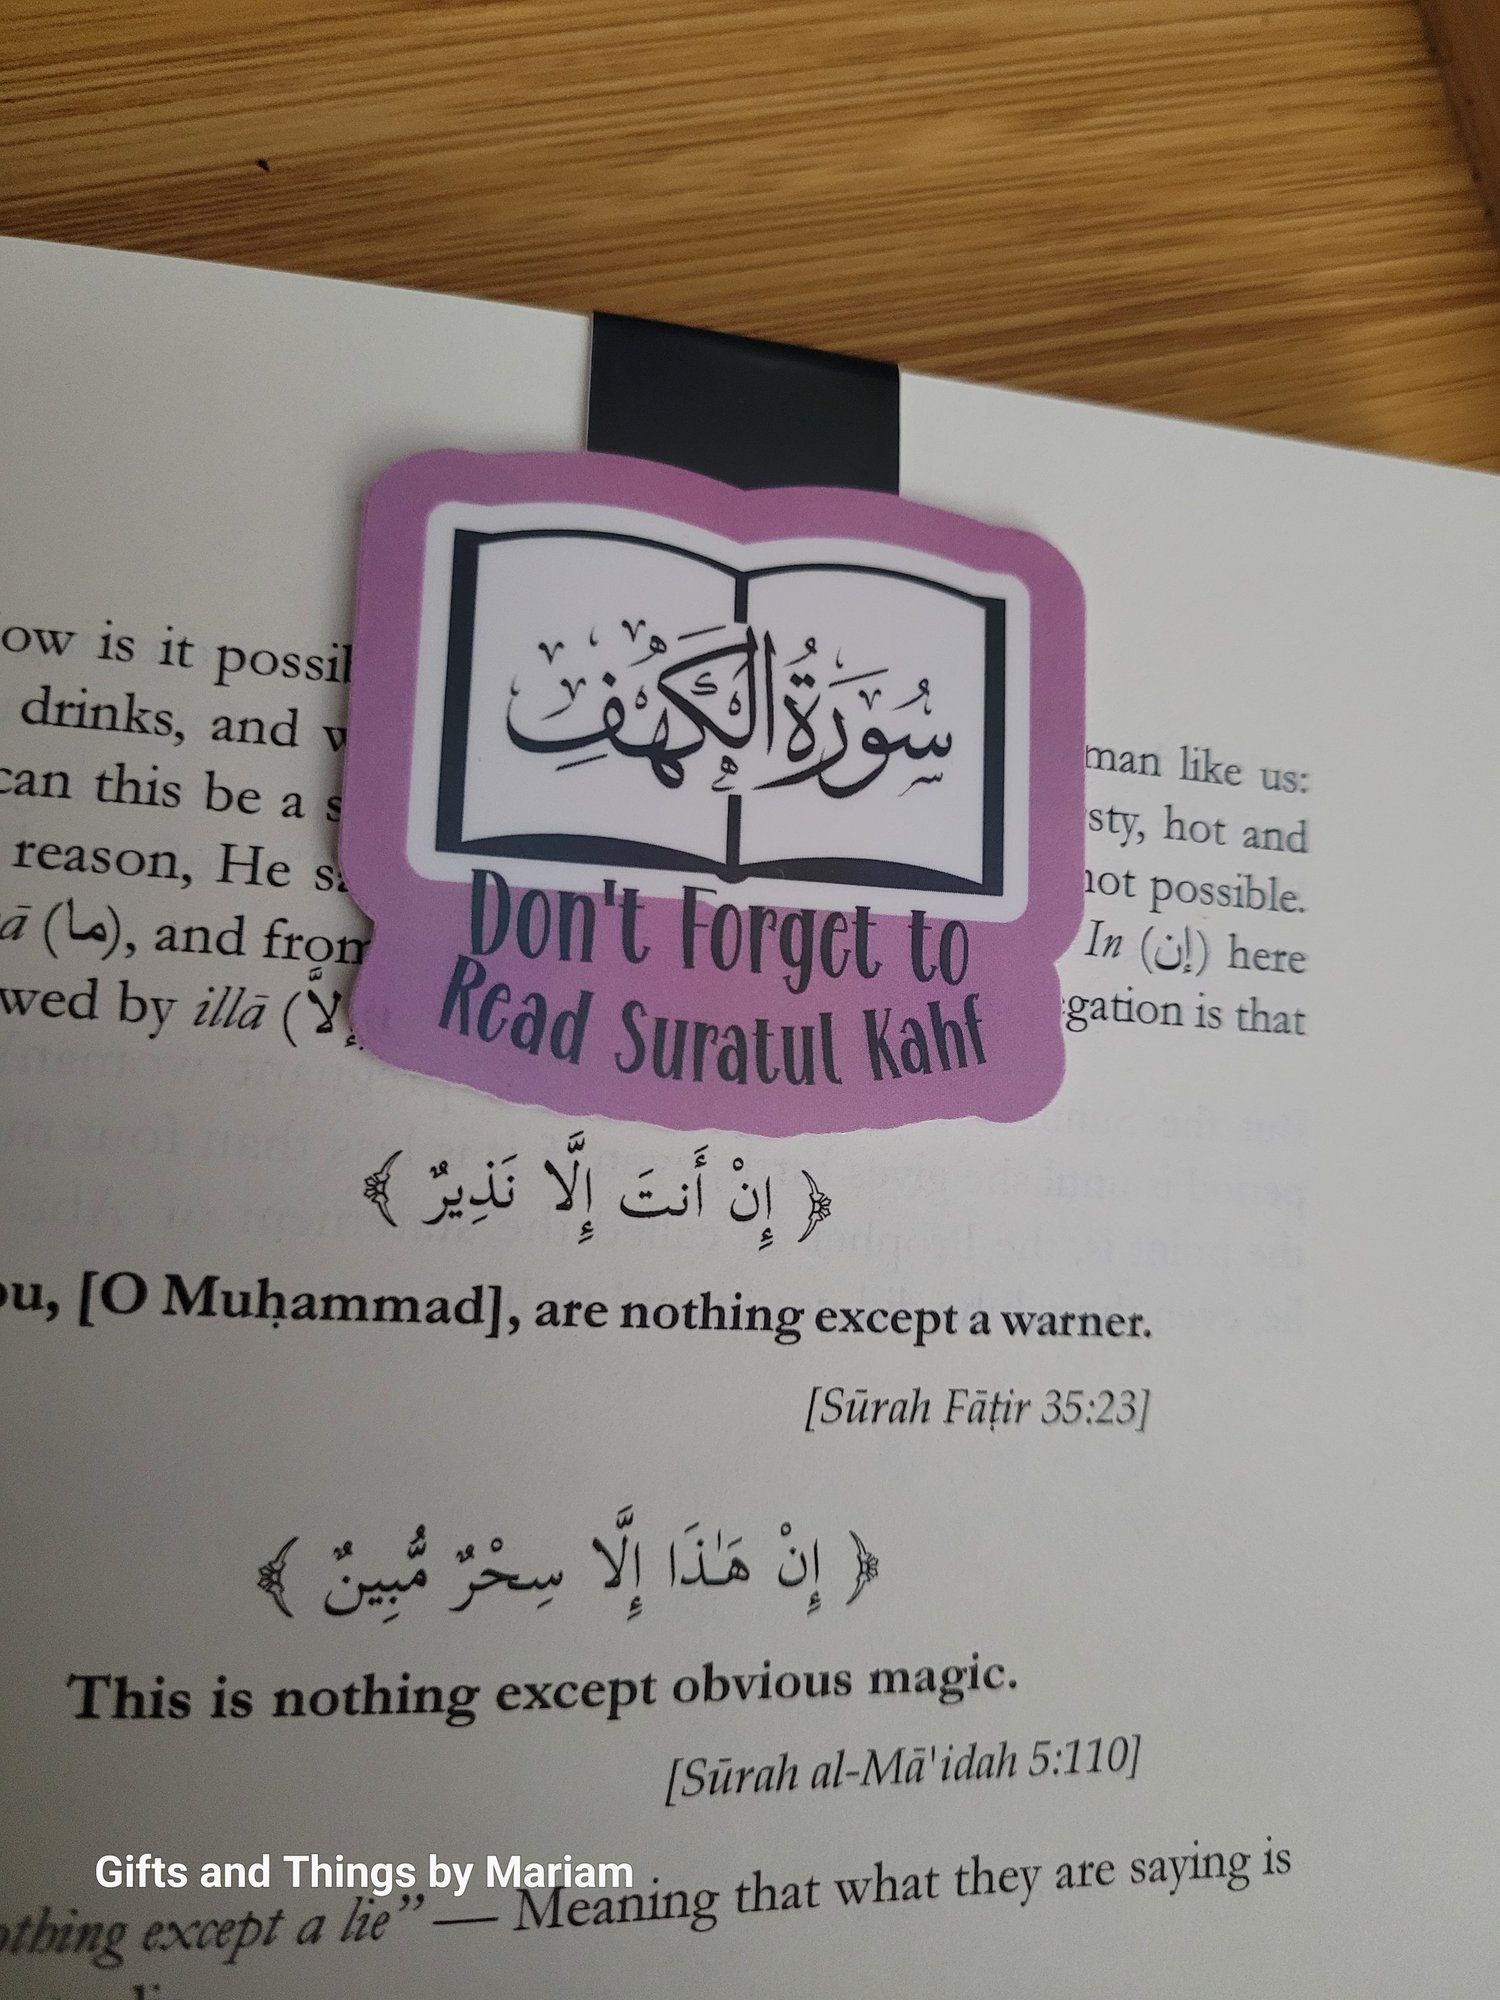 سُورَةُ الْكَهْفِ
Don't Forget to
Read Suratul Kahf
ow is it possi man like us:
drinks, and sty, hot and
can this be a not possible.
reason, He In (إن) here
(ما), and from gation is that
wed by illā (إلاَّ
﴿ إِنْ أَنتَ إِلَّا نَذِيرٌ ﴾
ou, [O Muḥammad], are nothing except a warner.
[Sūrah Fāṭir 35:23]
﴿ إِنْ هَـٰذَا إِلَّا سِحْرٌ مُّبِينٌ ﴾
This is nothing except obvious magic.
[Sūrah al-Mā'idah 5:110]
Gifts and Things by Mariam
othing except a lie” — Meaning that what they are saying is